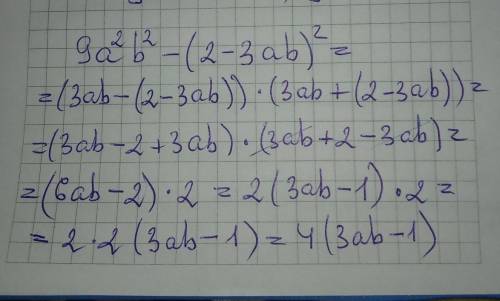 9a²b² − (2 − 3ab)² =
= (3ab − (2 − 3ab)) · (3ab + (2 − 3ab)) =
= (3ab − 2 + 3ab) · (3ab + 2 − 3ab) =
= (6ab − 2) · 2 = 2(3ab − 1) · 2 =
= 2 · 2 (3ab − 1) = 4(3ab − 1)